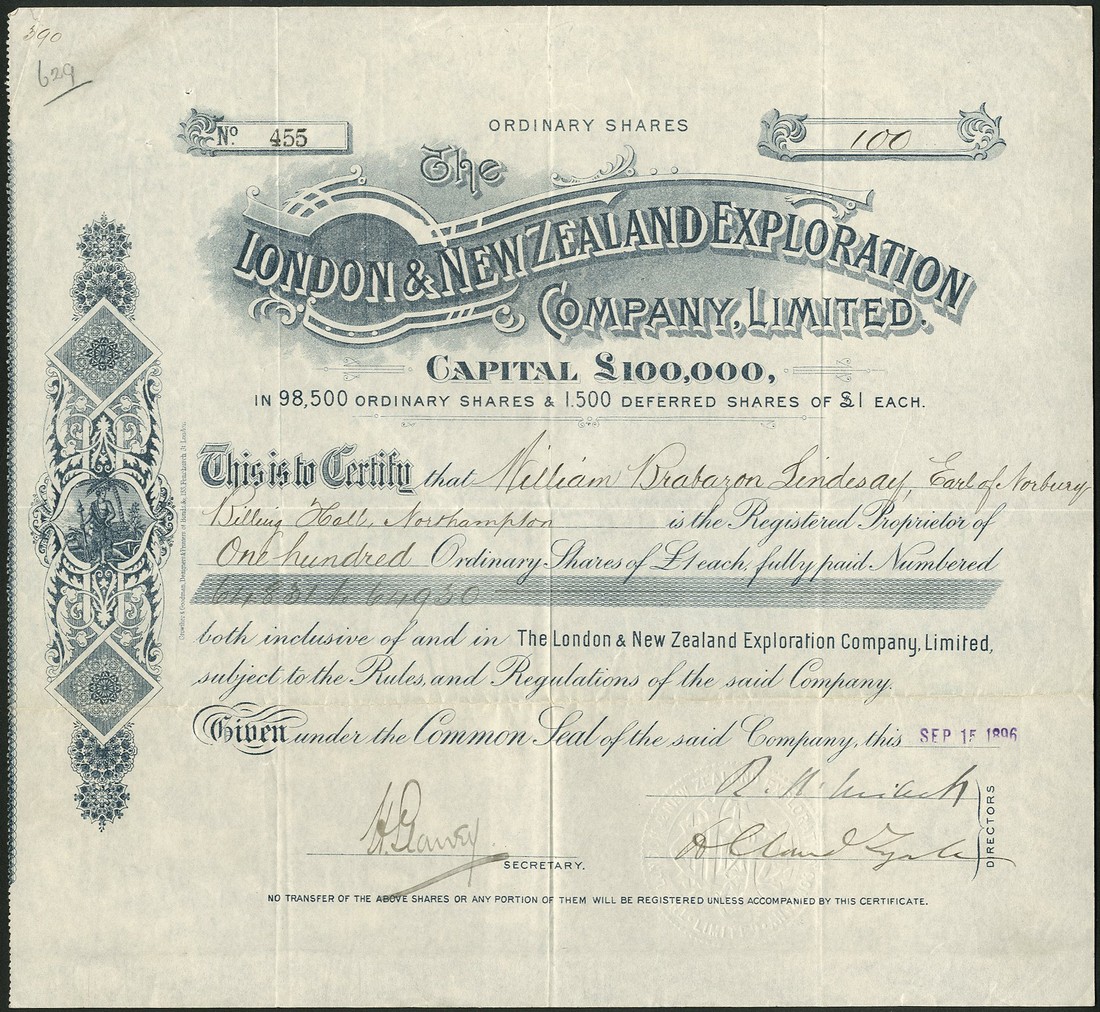 390
629
ORDINARY SHARES
No 455
100
The
LONDON & NEW ZEALAND EXPLORATION
COMPANY, LIMITED.
CAPITAL £100,000,
IN 98,500 ORDINARY SHARES & 1.500 DEFERRED SHARES OF £1 EACH.
This is to Certify that William Brabazon Lindesay, Earl of Norbury
Billing Hall, Northampton is the Registered Proprietor of
One hundred Ordinary Shares of £1 each, fully paid Numbered
64831 to 64930
both inclusive of and in The London & New Zealand Exploration Company, Limited,
subject to the Rules, and Regulations of the said Company.
Given under the Common Seal of the said Company, this SEP 15 1896
DIRECTORS
SECRETARY.
NO TRANSFER OF THE ABOVE SHARES OR ANY PORTION OF THEM WILL BE REGISTERED UNLESS ACCOMPANIED BY THIS CERTIFICATE.